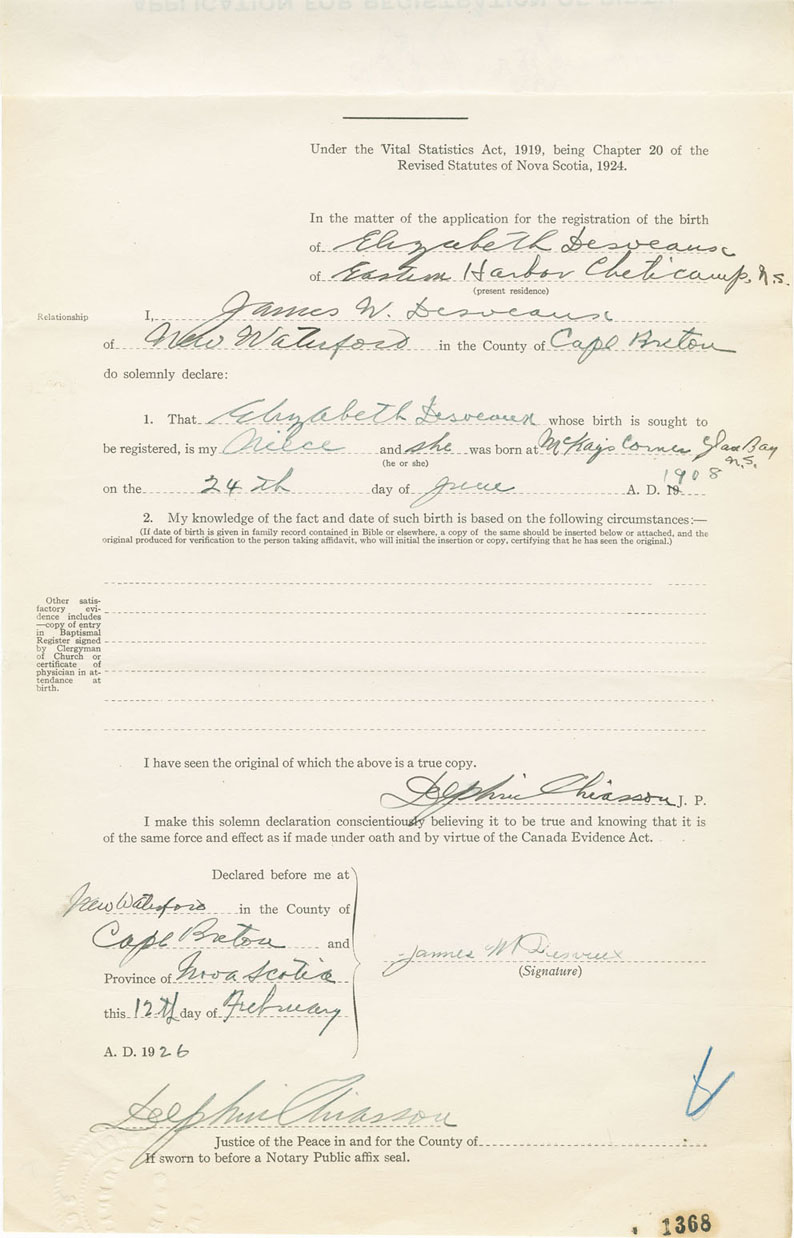 Under the Vital Statistics Act, 1919, being Chapter 20 of the
Revised Statutes of Nova Scotia, 1924.
In the matter of the application for the registration of the birth
of Elizabeth Desveaux
of Eastern Harbor Cheticamp, N.S.
(present residence)
Relationship
I, James W. Desveaux
of New Waterford in the County of Cape Breton
do solemnly declare:
1. That Elizabeth Desveaux whose birth is sought to
be registered, is my Niece and she was born at McKays Corner Glace Bay N.S.
(he or she)
on the 24th day of June A. D. 19 1908
2. My knowledge of the fact and date of such birth is based on the following circumstances:—
(If date of birth is given in family record contained in Bible or elsewhere, a copy of the same should be inserted below or attached, and the
original produced for verification to the person taking affidavit, who will initial the insertion or copy, certifying that he has seen the original.)
Other satis-
factory evi-
dence includes
—copy of entry
in Baptismal
Register signed
by Clergyman
of Church or
certificate of
physician in at-
tendance at
birth.
I have seen the original of which the above is a true copy.
Delphin Chiasson J. P.
I make this solemn declaration conscientiously believing it to be true and knowing that it is
of the same force and effect as if made under oath and by virtue of the Canada Evidence Act.
Declared before me at
New Waterford in the County of
Cape Breton and
Province of Nova Scotia
this 12th day of February
A. D. 1926
James W Desveux
(Signature)
Delphin Chiasson
Justice of the Peace in and for the County of
If sworn to before a Notary Public affix seal.
1368